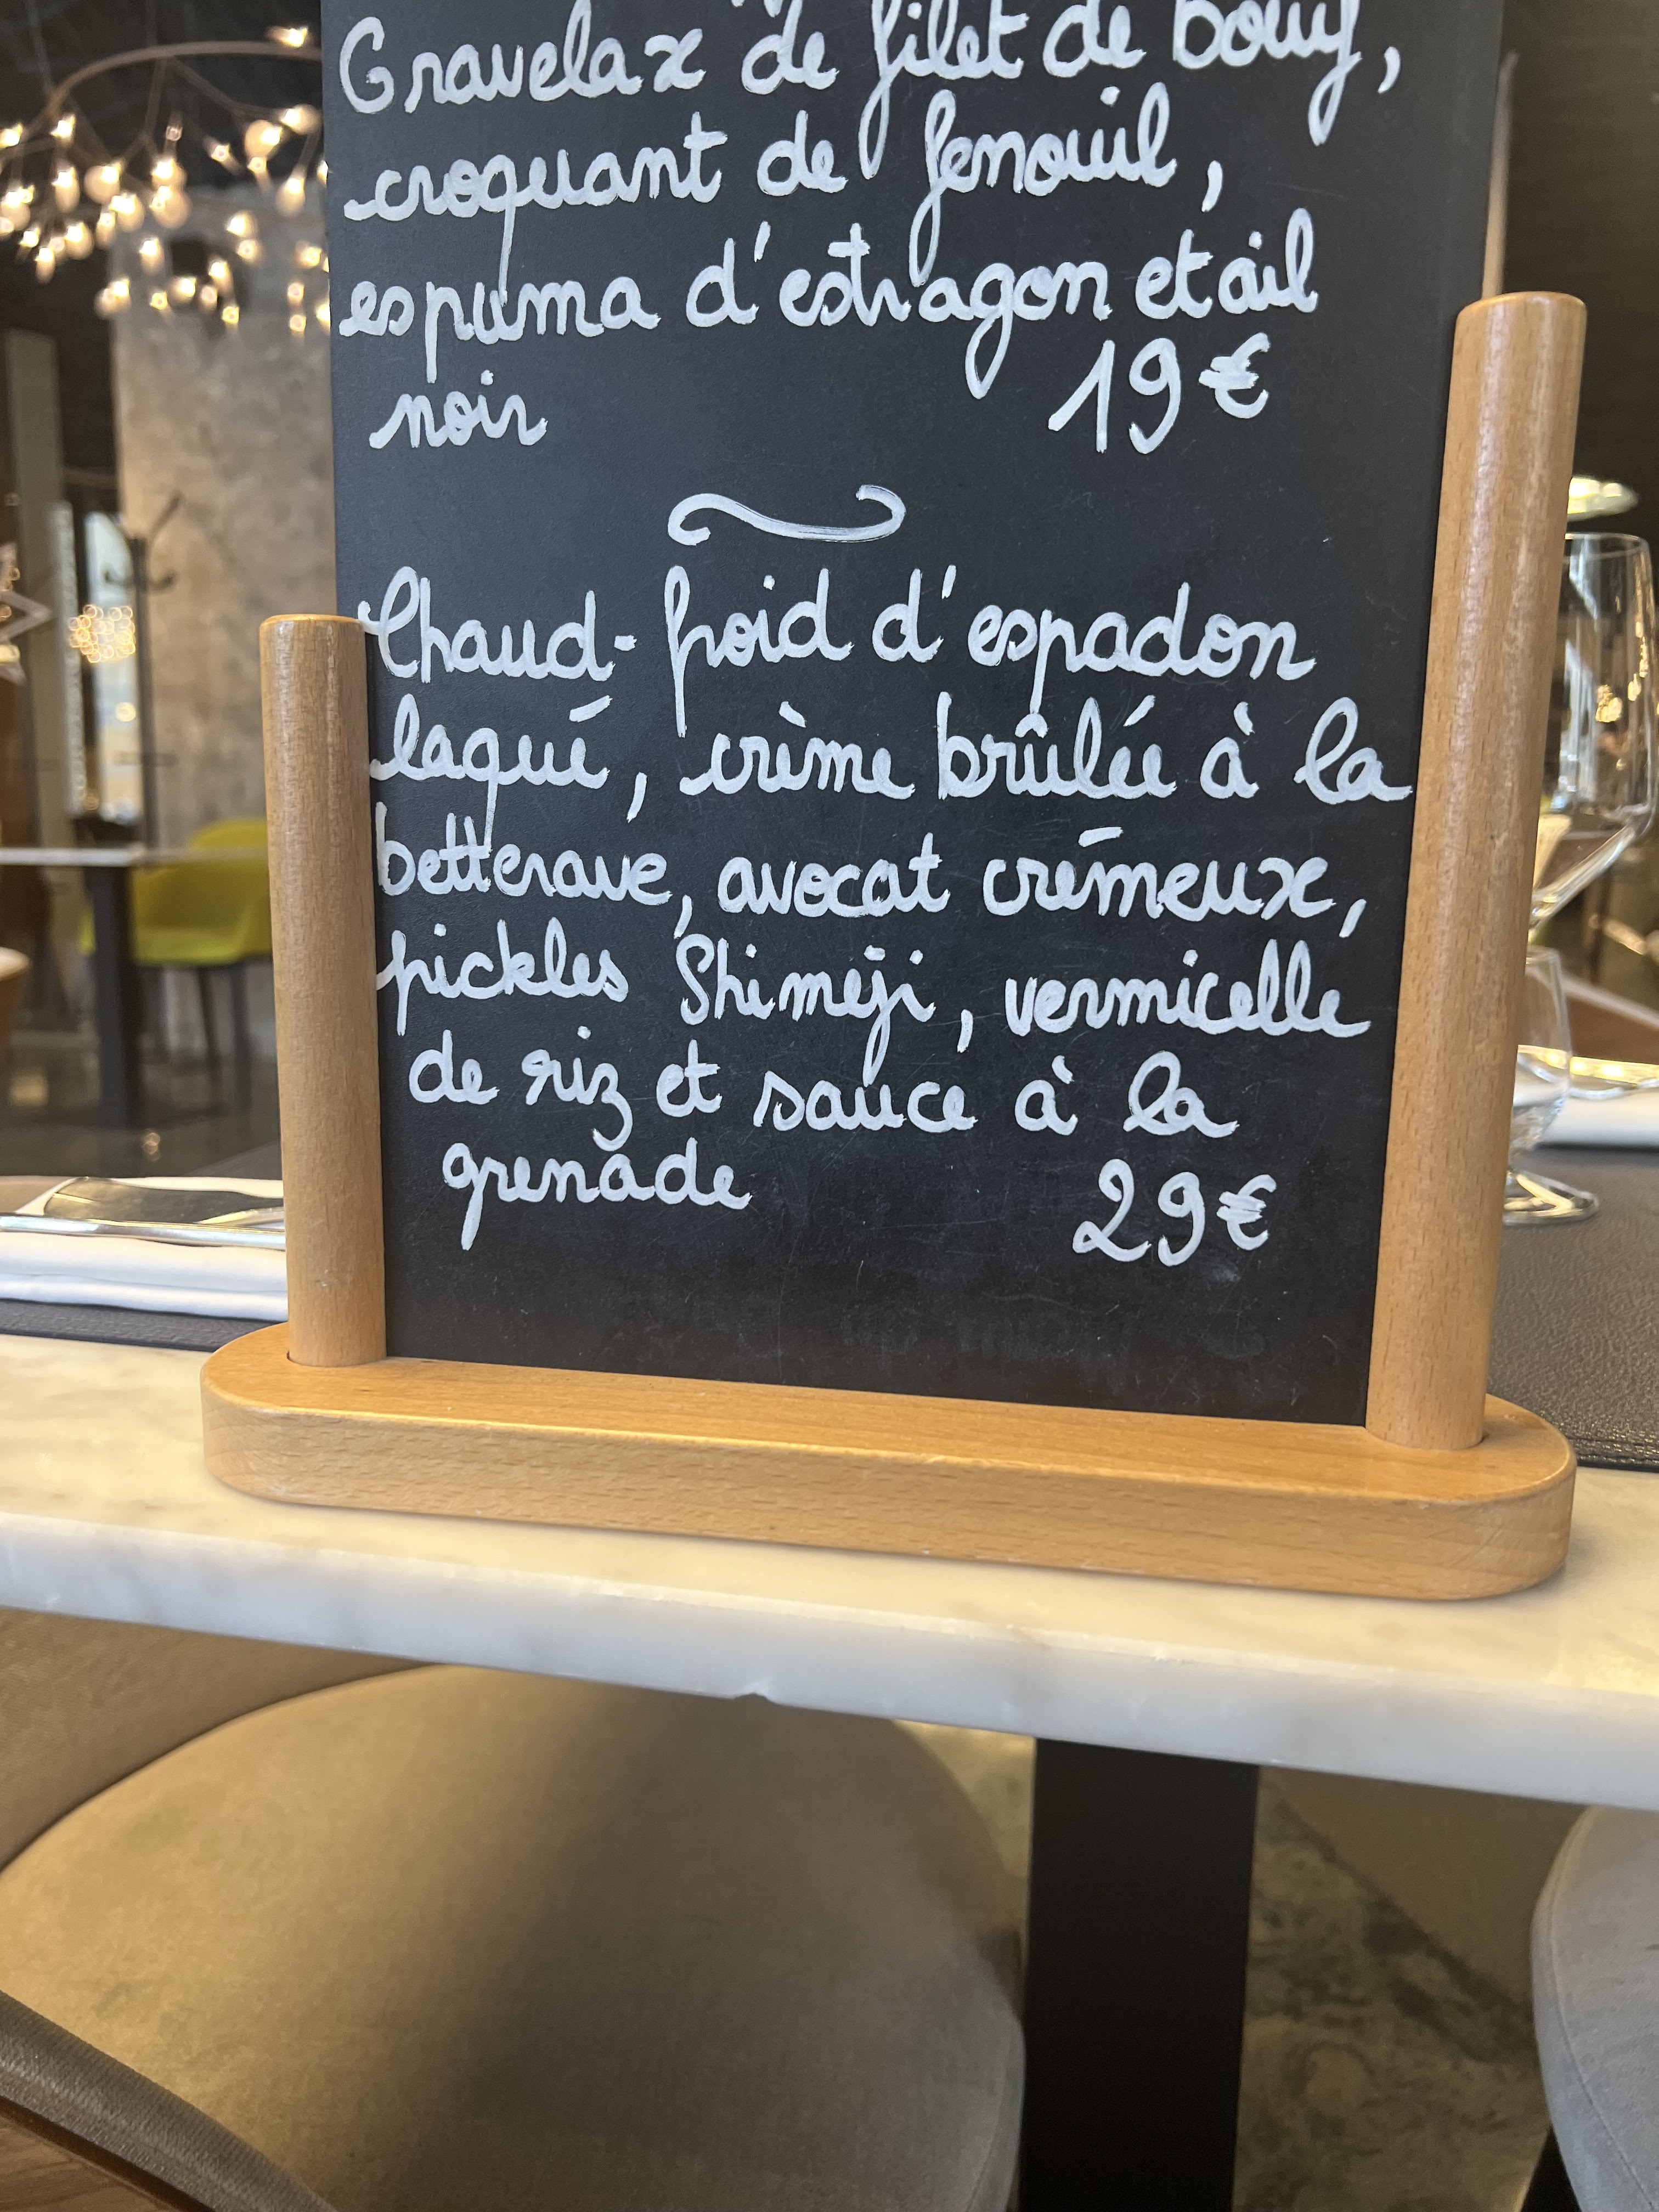 Gravelax de filet de bœuf,
croquant de fenouil,
espuma d'estragon et ail
noir 19€
Chaud-froid d'espadon
laqué, crème brûlée à la
betterave, avocat crémeux,
pickles Shimeji, vermicelle
de riz et sauce à la
grenade 29€